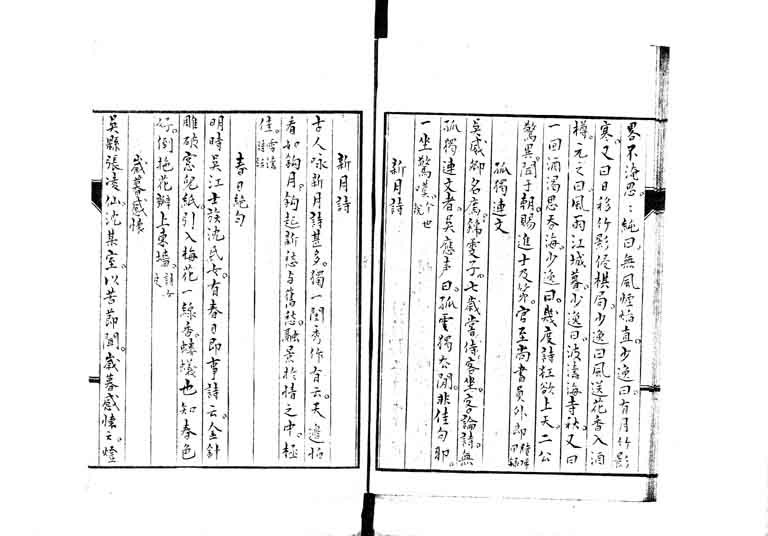 畧不淹思。純曰無風煙焰直。少逸曰有月竹影
寒。又曰日移竹影侵棋局。少逸曰風送花香入酒
樽。元之曰風雨江城暮。少逸曰波濤海寺秋。又曰
一回酒渴思吞海。少逸曰幾度詩狂欲上天。二公
驚異。聞于朝。賜進士及第。官至尚書員外郎
孤獨連文
吳感卿名為錦雯子。七歲嘗侍客坐。客論詩無
孤獨連文者。吳應聲曰。孤雲獨去閒。非佳句耶。
一坐驚嘆。今世說
新月詩
新月詩
古人咏新月詩甚多。獨一閨秀作有云。天邊怕
看如鈎月。鈎起新愁与舊愁。融景於情之中。極
佳。雪濤詩話
春日絶句
明時吳江士族沈氏女有春日即事詩云。金針
雕破窓兒紙。引入梅花一線香。螻蟻也知春色
好。倒拖花瓣上東墻。
歲暮感懷
吳縣張凌仙沈某室。以苦節聞。歲暮感懷云。燈